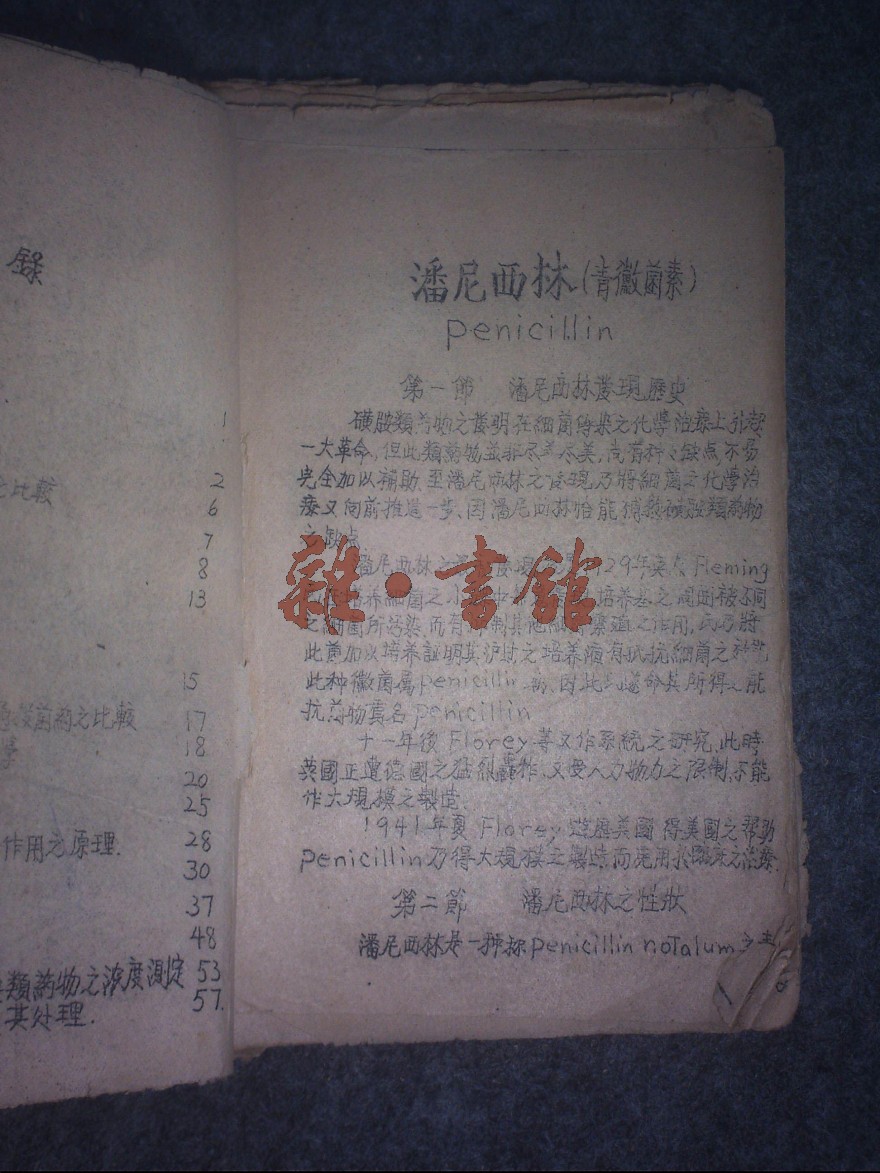 錄
1
之比較 2
6
7
8
13
15
菌药之比較 17
18
20
25
作用之原理. 28
30
37
48
類药物之浓度測定 53
其处理. 57.
潘尼西林(青黴菌素)
penicillin
第一節 潘尼西林發現歷史
磺胺類药物之發明在細菌傳染之化學治療上引起
一大革命,但此類药物並非尽善尽美,尚有种々缺点不易
完全加以補助至潘尼西林之發現乃將細菌之化學治
療又向前推進一步,因潘尼西林恰能補救磺胺類药物
之缺点
潘尼西林之 29年英 Fleming
培养細菌之 培养基之周围被不同
之細菌所污染而有抑制其他細菌繁殖之作用,
此菌加以培养証明其 之培养液有抵抗細菌之
此种黴菌属penicillin 因此 命其所得之能
抗药物質名penicillin
十一年後Florey等又作系統之研究,此時
英國正遭德國之猛烈轟炸,又受人力物力之限制,不能
作大規模之製造.
1941年夏Florey遊歷美國得美國之帮助
penicillin乃得大規模之製造而應用於臨床之治療.
第二節 潘尼西林之性狀
潘尼西林是一种 penicillin noTalum之
雜·書館